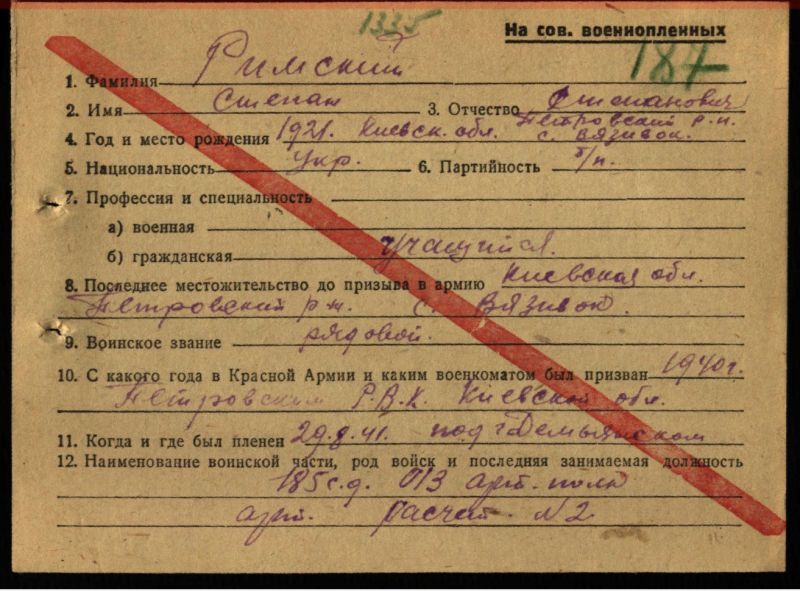 1335
На сов. военнопленных
187
1. Фамилия Римский
2. Имя Степан 3. Отчество Степанович
4. Год и место рождения 1921. Киевск. обл. Петровский р.н. с. Вязивок.
5. Национальность Укр. 6. Партийность б/п.
7. Профессия и специальность
а) военная
б) гражданская учащийся.
8. Последнее местожительство до призыва в армию Киевская обл.
Петровский р-н. с. Вязивок.
9. Воинское звание рядовой.
10. С какого года в Красной Армии и каким военкоматом был призван 1940г.
Петровским Р.В.К. Киевской обл.
11. Когда и где был пленен 29.8.41. под г Демьянском
12. Наименование воинской части, род войск и последняя занимаемая должность
185 с.д. 013 арт. полк
арт. расчет. N2